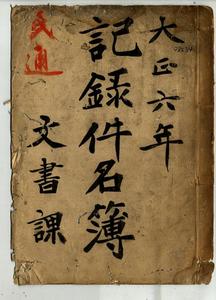 大正六年
記録件名簿
文書課
民通